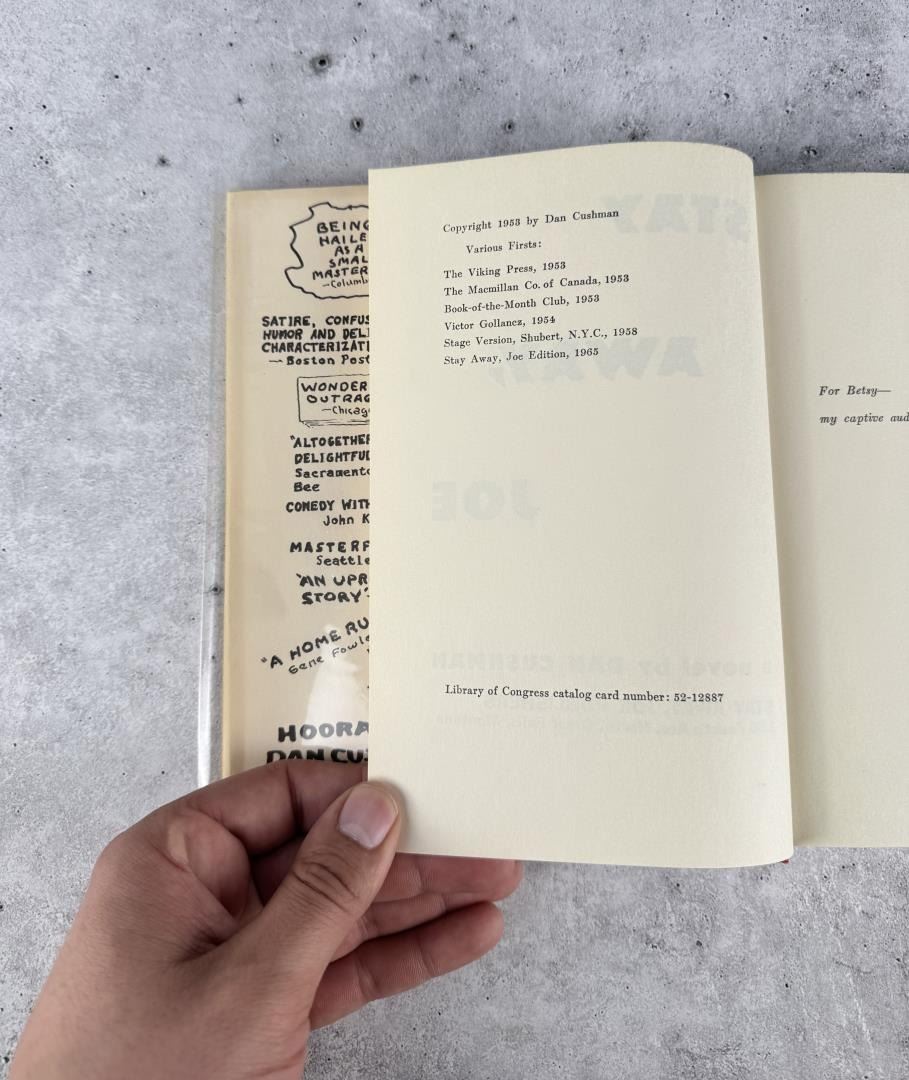 BEING
HAILE
AS A
SMAL
MASTER
—Columb
SATIRE, CONFUS
HUMOR AND DELI
CHARACTERIZATI
— Boston Post
WONDER
OUTRAG
—Chicag
"ALTOGETHER
DELIGHTFUL
Sacramento
Bee
COMEDY WITH
John K
MASTERF
Seattle
"AN UPR
STORY"
"A HOME RU
Gene Fowle
HOORA
DAN CUS
Copyright 1953 by Dan Cushman
Various Firsts:
The Viking Press, 1953
The Macmillan Co. of Canada, 1953
Book-of-the-Month Club, 1953
Victor Gollancz, 1954
Stage Version, Shubert, N.Y.C., 1958
Stay Away, Joe Edition, 1965
STAY
AWAY,
JOE
a novel by DAN CUSHMAN
Library of Congress catalog card number: 52-12887
For Betsy—
my captive aud